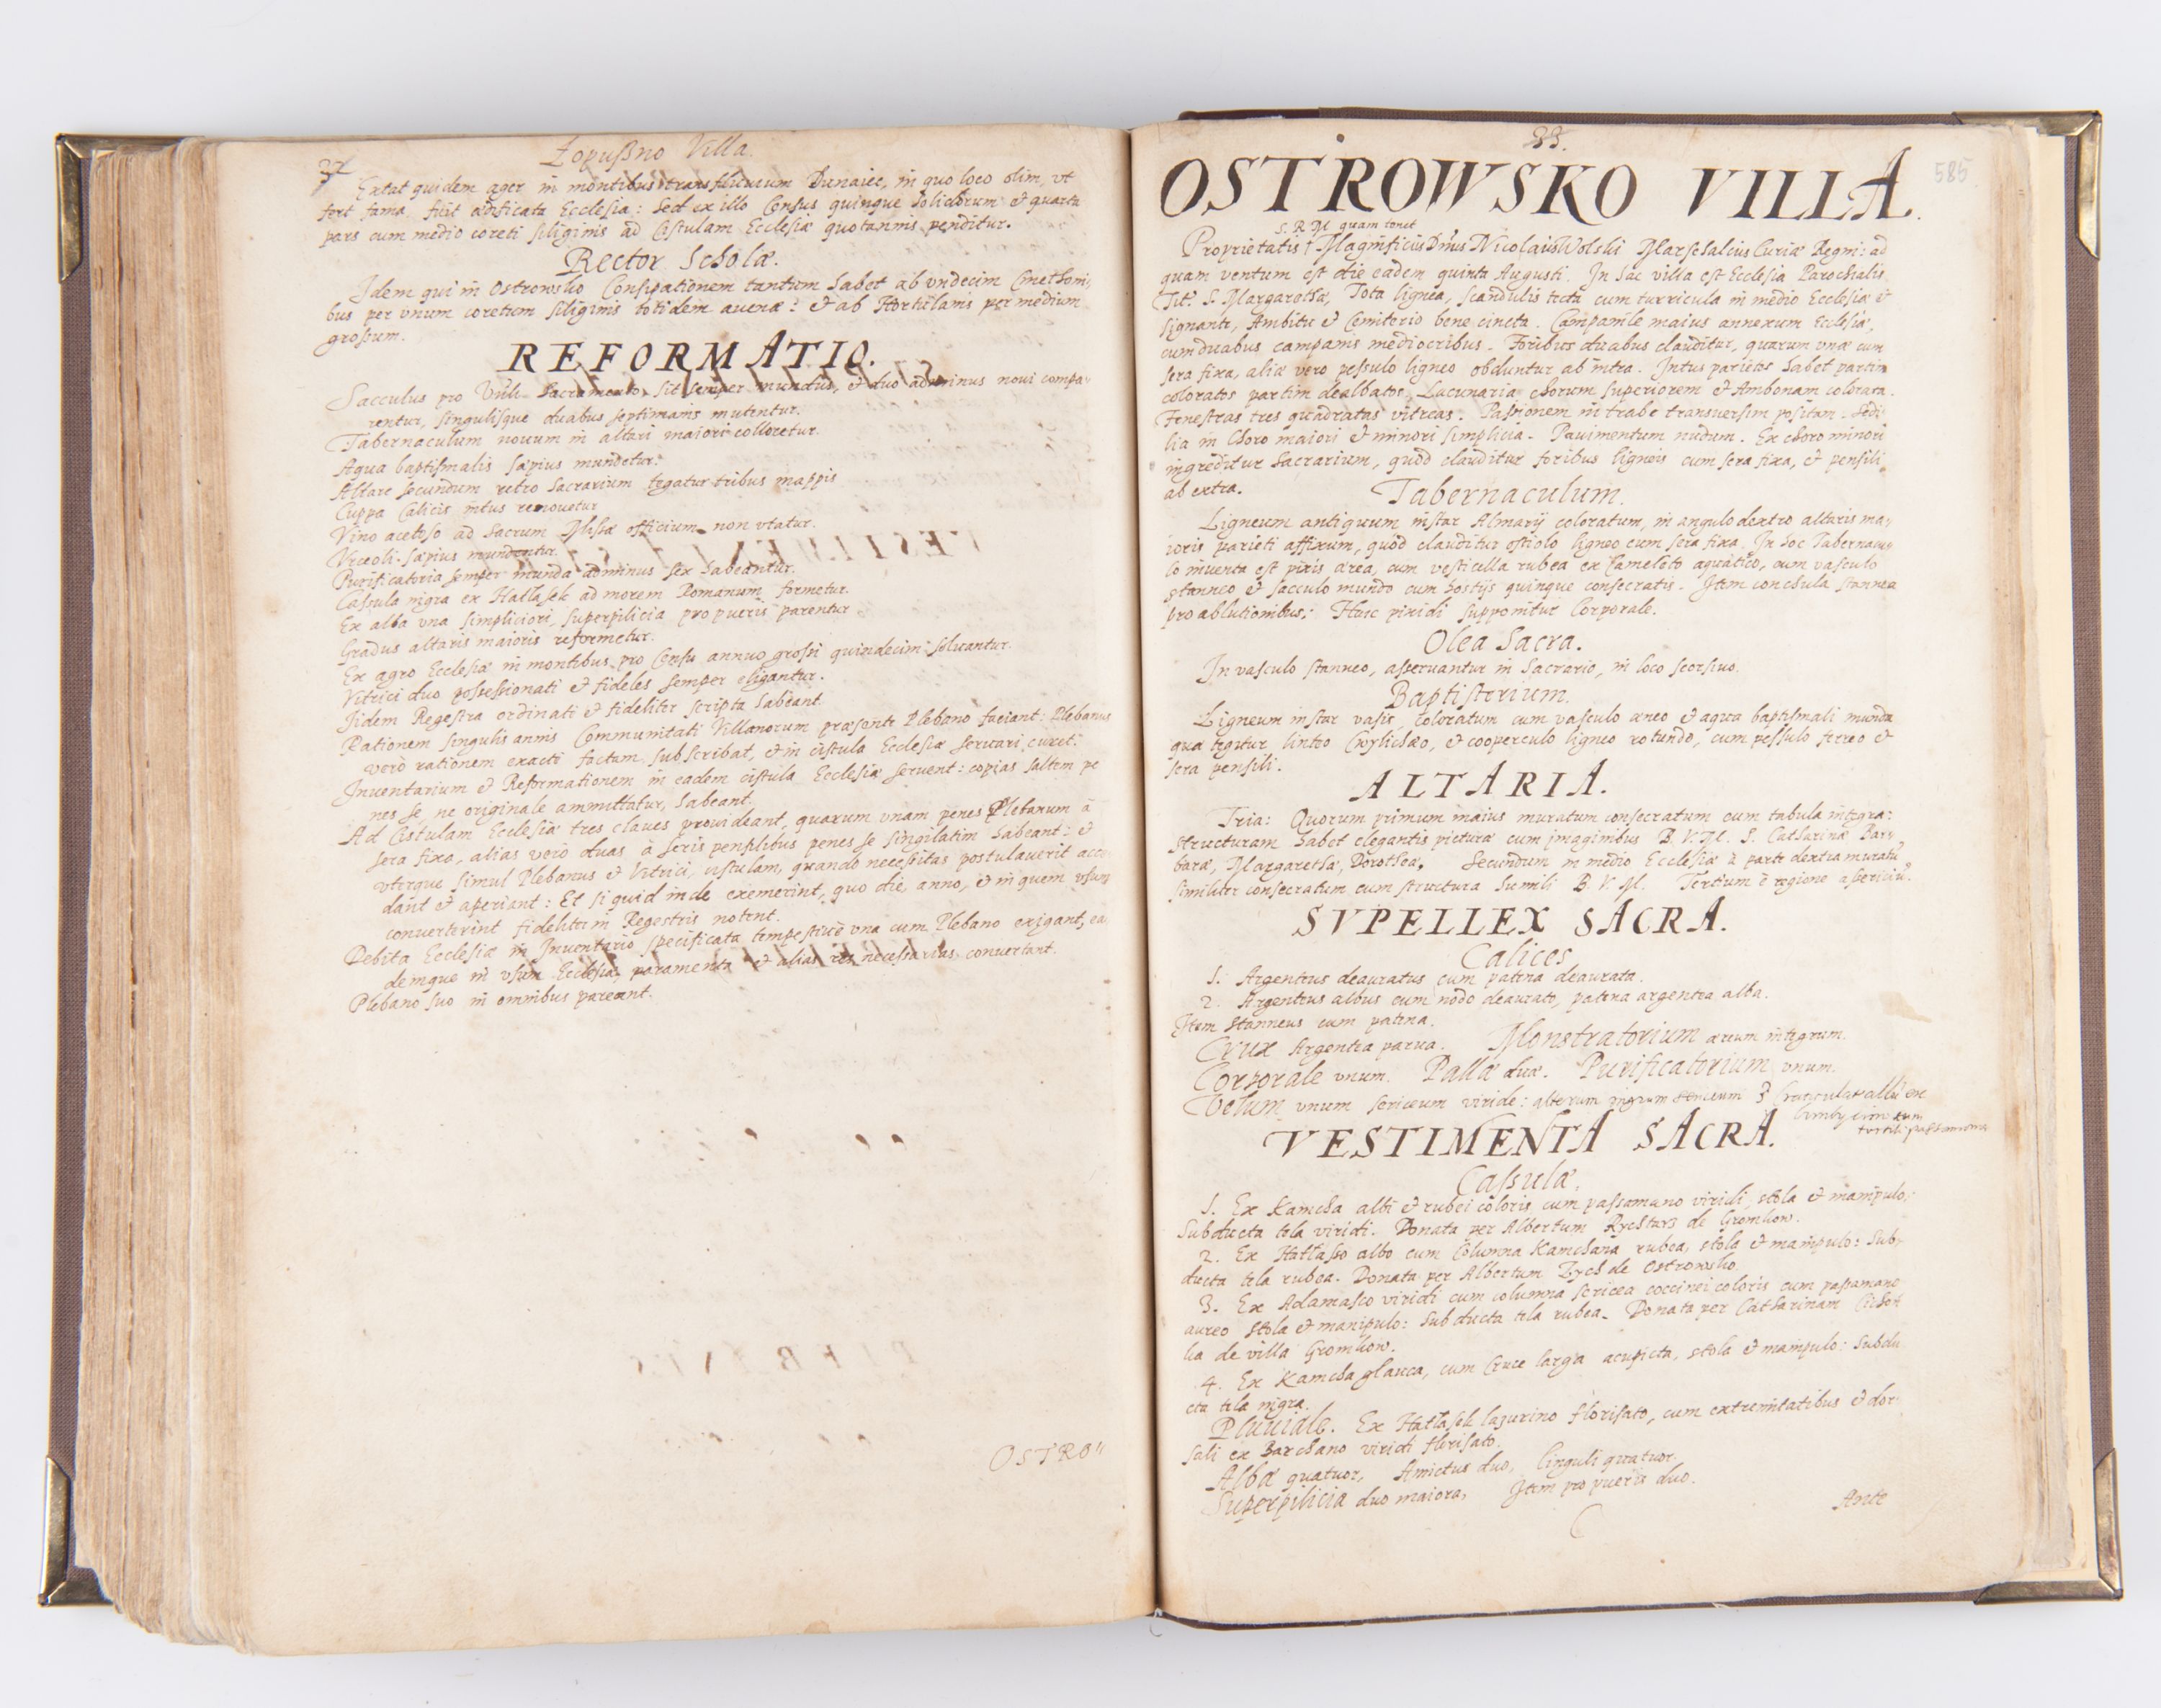 Łopußno Villa.
Extat quidem ager in montibus trans fluuium Dunaiec, in quo loco olim, vt
fert fama, fuit ædificata Ecclesia: Sed ex illo Census quinque Solidorum & quarta
pars cum medio coreti siliginis ad Cistulam Ecclesiæ quotannis penditur.
Rector Scholæ.
Idem qui in Ostrowsko Conseruationem tantum habet ab vndecim Cmethoni,
bus per vnum coretum siliginis totidem auenæ: & ab Hortulanis per medium
grossum.
REFORMATIO.
Sacculus pro Vnli Sacramento, sit semper mundus, & duo adminus noui compa,
rentur, singulisque duabus septimanis mutentur.
Tabernaculum nouum in altari maiori collocetur.
Aqua baptismalis sæpius mundetur.
Altare secundum retro Sacrarium tegatur tribus mappis
Cuppa Calicis intus renouetur
Vino acetoso ad Sacrum Missæ officium non vtatur.
Vrceoli sæpius mundentur.
Purificatoria semper munda adminus sex habeantur.
Casula nigra ex Hatlasek ad morem Romanum formetur.
Ex alba vna simpliciori, superpilicia pro pueris parentur
Gradus altaris maioris reformetur.
Ex agro Ecclesiæ in montibus pro Censu annuo grossi quindecim soluantur.
Vitrici duo possessionati & fideles semper eligantur.
Iidem Regestra ordinati & fideliter scripta habeant.
Rationem singulis annis Communitati Villanorum præsente Plebano faciant: Plebanus
verò rationem exacti factam subscribat, & in cistula Ecclesiæ seruari curet.
Inuentarium & Reformationem in eadem cistula Ecclesiæ seruent: copias saltem pe
nes se, ne originale ammittatur, habeant.
Ad Cistulam Ecclesiæ tres claues prouideant, quarum vnam penes Plebanum à
sera fixa, alias verò duas à seris pensilibus penes se singilatim habeant: &
vterque simul Plebanus & Vitrici, cistulam, quando necessitas postulauerit acce
dant & aperiant: Et si quid inde exemerint, quo die, anno, & in quem vsum
conuerterint fideliter in Regestris notent.
Debita Ecclesiæ in Inuentario specificata tempestiuè vna cum Plebano exigant, ea
demque in vsum Ecclesiæ, paramenta & alias res necessarias conuertant.
Plebano suo in omnibus pareant.
OSTRO"
33.
585
OSTROWSKO VILLA.
S. R. M. quam tenet
Proprietatis † Magnificus Dnus Nicolaus Wolski Marschalcus Curiæ Regni: ad
quam ventum est die eadem quinta Augusti. In hac villa est Ecclesia Parochialis
Tit: S. Margarethæ, Tota lignea, scandulis tecta cum turricula in medio Ecclesiæ &
signanti, Ambitu & Cemiterio bene cincta. Campanile maius annexum Ecclesiæ,
cum duabus campanis mediocribus. Foribus duabus clauditur, quarum vnæ cum
sera fixa, aliæ vero pessulo ligneo obduntur ab intra. Intus parietes habet partim
coloratos partim dealbatos, Lacunaria chorum superiorem & Ambonam colorata.
Fenestras tres quadratas vitreas. Passionem in trabe transuersim positam. Sedi
lia in Choro maiori & minori simplicia. Pauimentum nudum. Ex choro minori
ingreditur Sacrarium, quod clauditur foribus ligneis cum sera fixa, & pensili
ab extra.
Tabernaculum.
Ligneum antiquum instar Almarij coloratum, in angulo dextro altaris ma,
ioris parieti affixum, quod clauditur ostiolo ligneo cum sera fixa. In hoc Tabernacu
lo inuenta est pixis ærea, cum vesticella rubea ex Cameleto aquatico, cum vasculo
stanneo & sacculo mundo cum hostijs quinque consecratis. Item conchula stannea
pro ablutionibus: Huic pixidi supponitur Corporale.
Olea Sacra.
In vasculo stanneo, asseruantur in Sacrario, in loco seorsiuo.
Baptisterium.
Ligneum instar vasis, coloratum cum vasculo æneo & aqua baptismali munda
qua tegitur linteo Cwylichæo, & cooperculo ligneo rotundo, cum pessulo ferreo &
sera pensili.
ALTARIA.
Tria: Quorum primum maius muratum consecratum cum tabula integra:
structuram habet elegantis picturæ cum imaginibus B. V. M. S. Catharinæ Bar,
baræ, Margarethæ, Dorotheæ. Secundum in medio Ecclesiæ à parte dextra muratu
similiter consecratum cum structura simili B. V. M. Tertium è regione
SVPELLEX SACRA.
Calices
1. Argenteus deauratus cum patina deaurata.
2. Argenteus albus cum nodo deaurato, patina argentea alba.
Item Stanneus cum patina.
Crux Argentea parua. Monstratorium æreum integrum.
Corporale vnum. Pallæ duæ. Purificatorium vnum.
Velum vnum sericeum viride: alterum nigrum sericeum 3
VESTIMENTA SACRA.
Casulæ,
1. Ex Kamcha albi & rubei coloris cum passamano viridi, stola & manipulo,
Subducta tela viridi. Donata per Albertum Rychtarz de Gronkow.
2. Ex Hatlasso albo cum Columna Kamchana rubea, stola & manipulo: Sub,
ducta tela rubea. Donata per Albertum Zych de Ostrowsko.
3. Ex Adamasco viridi cum columna sericea coccinei coloris cum passamano
aureo stola & manipulo: Subducta tela rubea. Donata per Catharinam Cichon
ka de villa Gronkow.
4. Ex Kamcha glauca, cum Cruce larga acupicta, stola & manipulo: Subdu
cta tela nigra.
Pluuiale. Ex Hatlasek lazurino florisato, cum extremitatibus & dor,
sali ex Barchano viridi florisato.
Albæ quatuor, Amictus duo, Cinguli quatuor.
Superpilicia duo maiora, Item pro pueris duo.
Ante